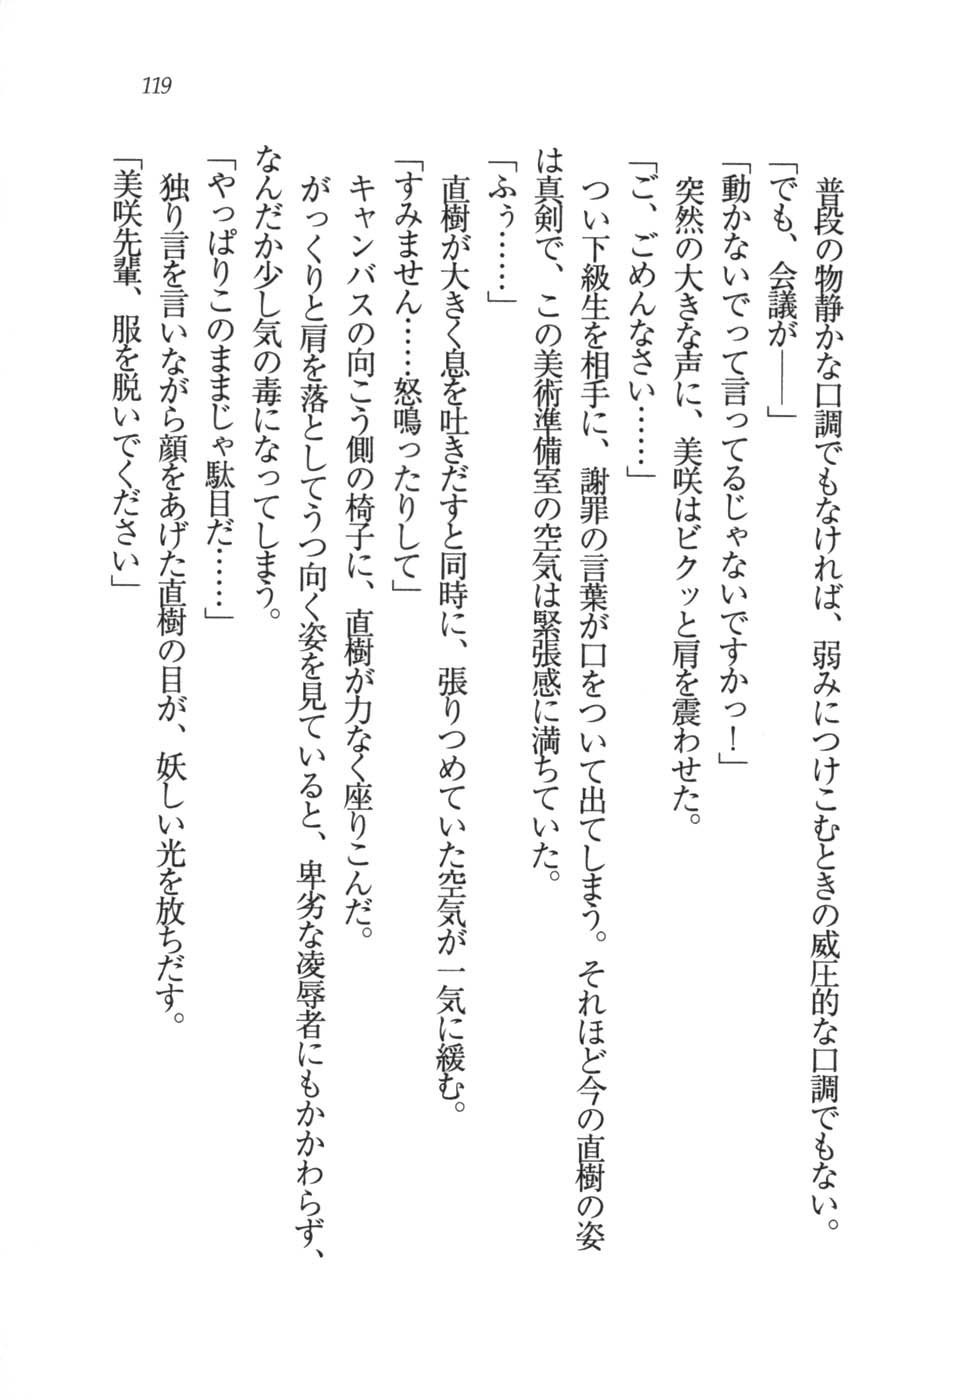 119
普段の物静かな口調でもなければ、弱みにつけこむときの威圧的な口調でもない。
「でも、会議が――」
「動かないでって言ってるじゃないですかっ！」
突然の大きな声に、美咲はビクッと肩を震わせた。
「ご、ごめんなさい……」
つい下級生を相手に、謝罪の言葉が口をついて出てしまう。それほど今の直樹の姿
は真剣で、この美術準備室の空気は緊張感に満ちていた。
「ふぅ……」
直樹が大きく息を吐きだすと同時に、張りつめていた空気が一気に緩む。
「すみません……怒鳴ったりして」
キャンバスの向こう側の椅子に、直樹が力なく座りこんだ。
がっくりと肩を落としてうつ向く姿を見ていると、卑劣な凌辱者にもかかわらず、
なんだか少し気の毒になってしまう。
「やっぱりこのままじゃ駄目だ……」
独り言を言いながら顔をあげた直樹の目が、妖しい光を放ちだす。
「美咲先輩、服を脱いでください」